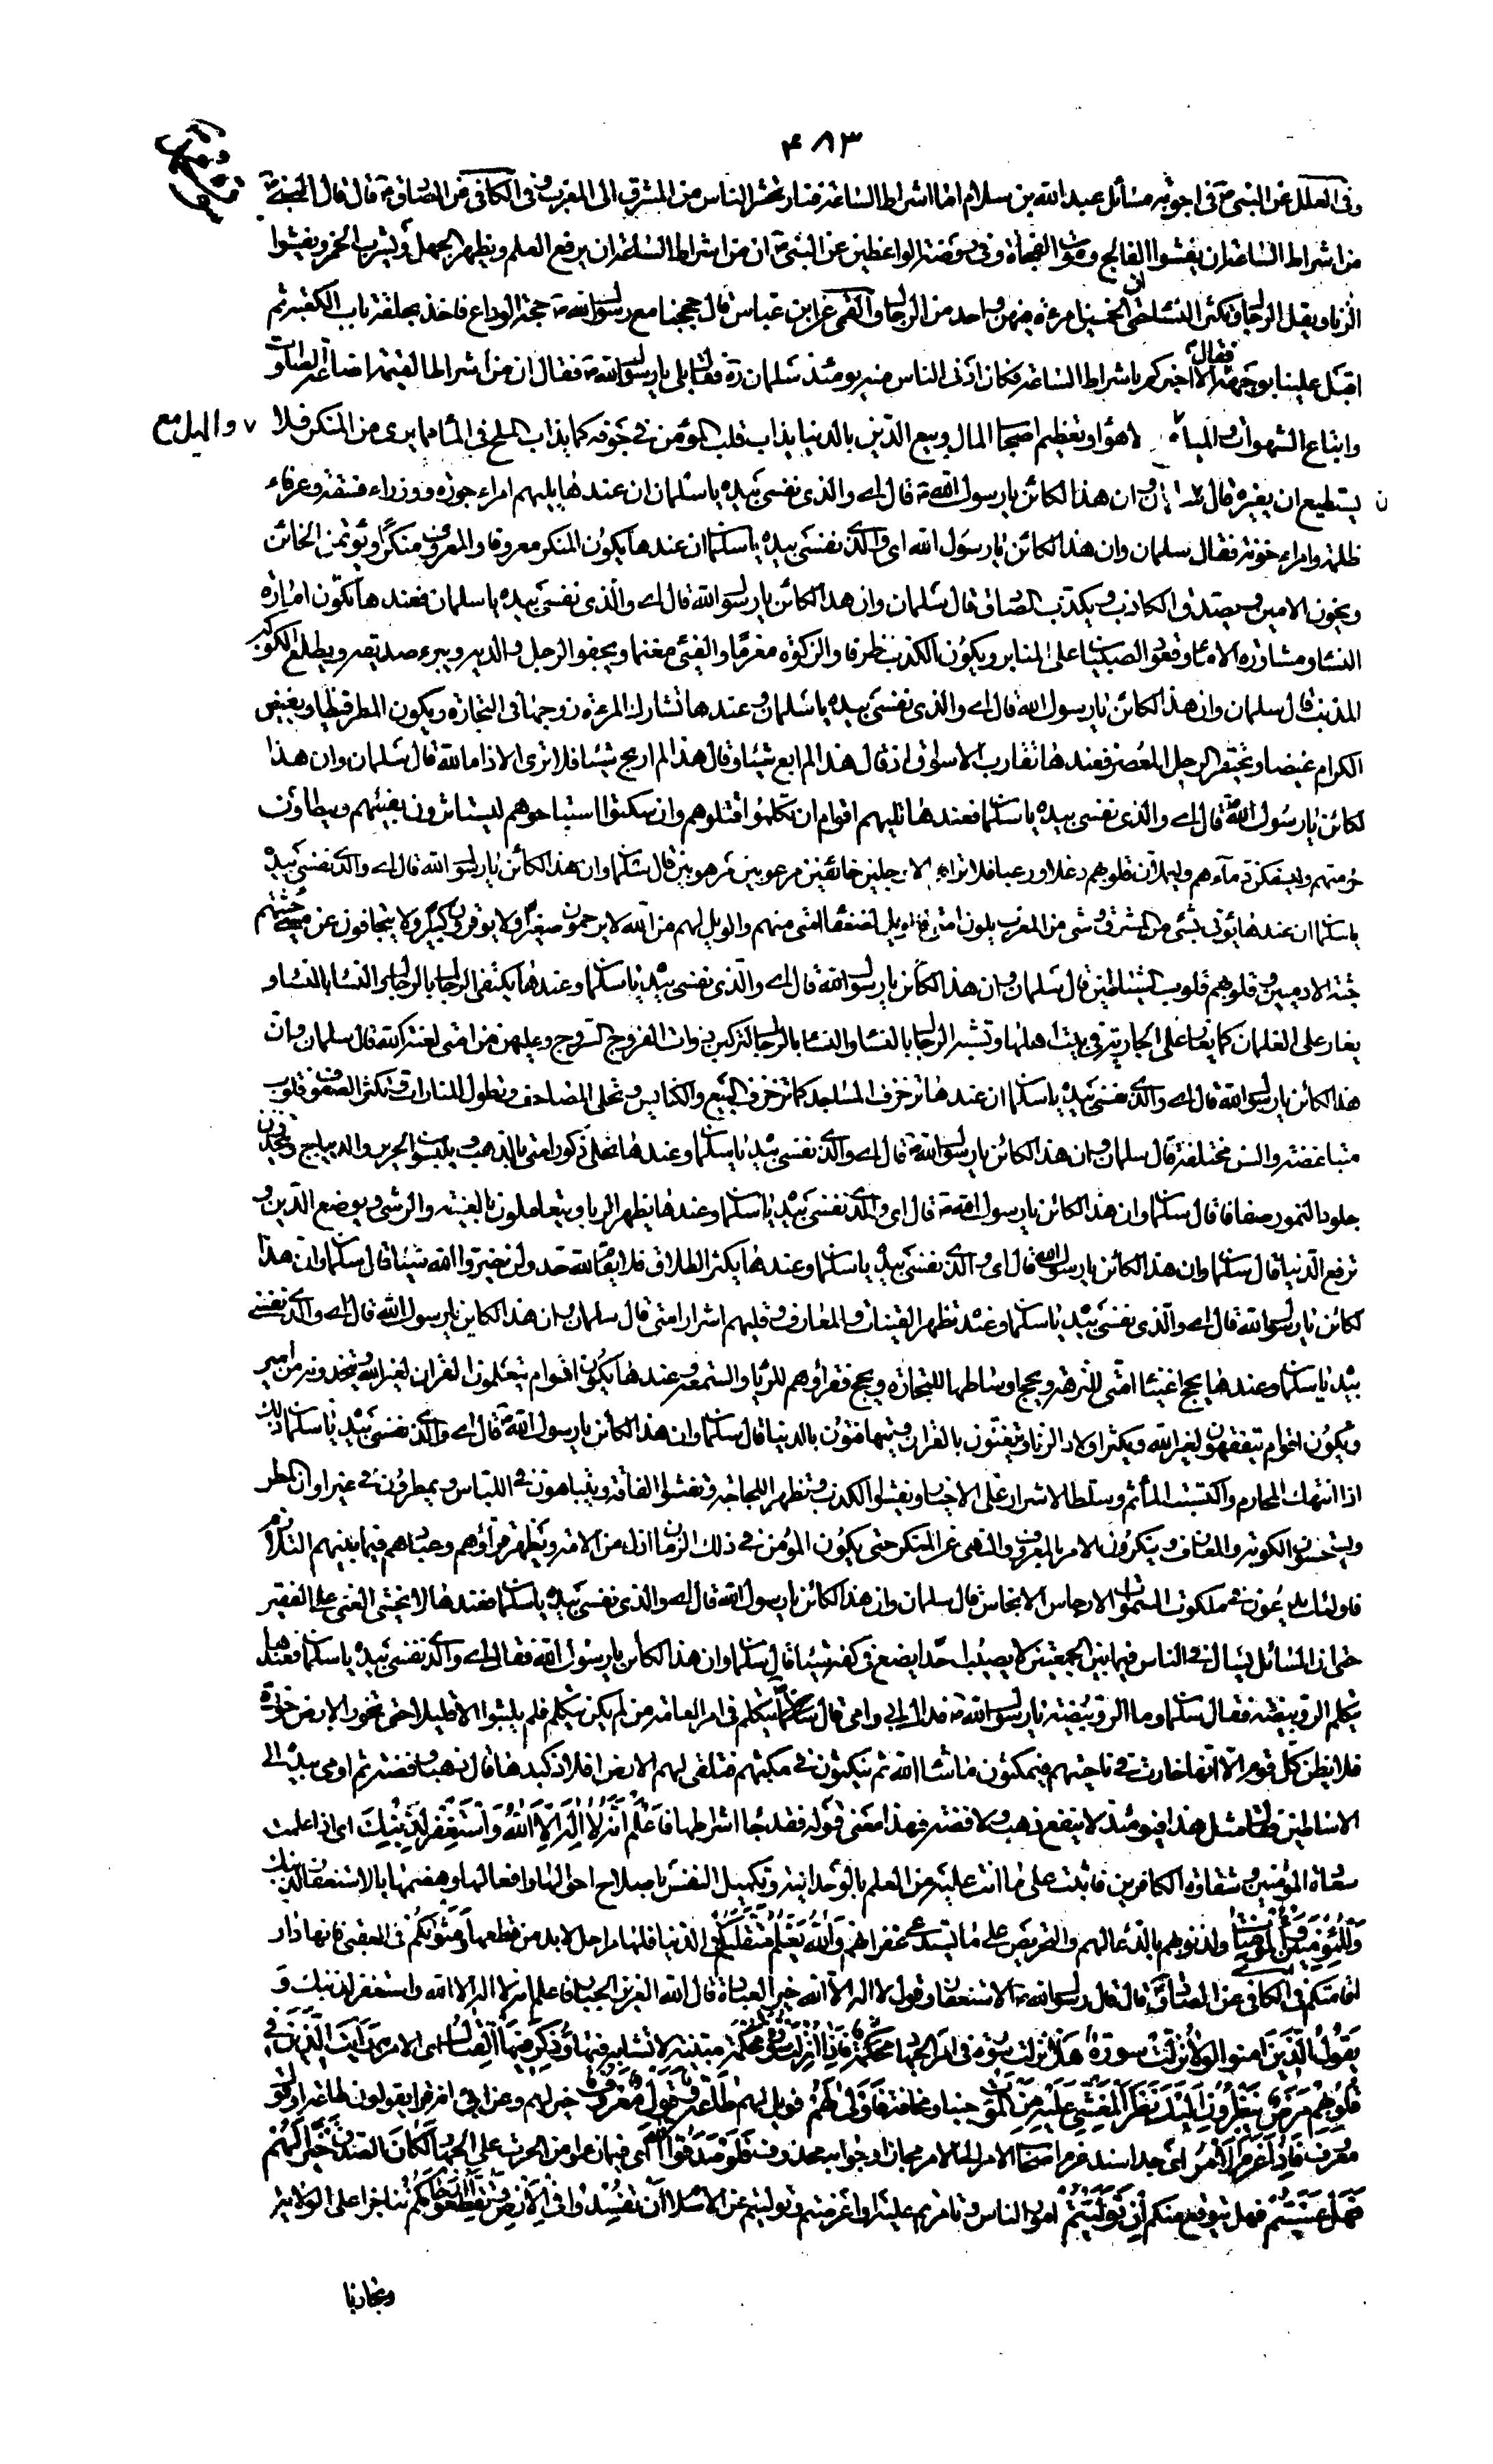 ۴۸۳
وفی العلل عن النبی ص فی اجوبه مسائل عبد الله بن سلام اما اشراط الساعة فنار تحشر الناس من المشرق الی المغرب وفی الکافی عن الصادق ع قال قال النبی ص
من اشراط الساعة ان یفشوا الفالج وموت الفجأة وفی روضة الواعظین عن النبی ص ان من اشراط الساعة ان یرفع العلم ویظهر الجهل ویشرب الخمر ویفشوا
الزنا ویقل الرجال وتکثر النساء حتی ان الخمسین امرءة فیهن واحد من الرجال والقمی عن ابن عباس قال حججنا مع رسول الله ص حجة الوداع فاخذ بحلقة باب الکعبة ثم
اقبل علینا بوجهه فقال الا اخبرکم باشراط الساعة فکان ادنی الناس منه یومئذ سلمان ره فقال بلی یا رسول الله ص فقال ان من اشراط القیمة اضاعة الصلوات
واتباع الشهوات والمیل مع الاهواء وتعظیم اصحاب المال وبیع الدین بالدنیا یذاب قلب المؤمن فی جوفه کما یذاب الملح فی الماء مما یری من المنکر فلا
یستطیع ان یغیره قال سلمان وان هذا لکائن یا رسول الله ص قال ای والذی نفسی بیده یا سلمان ان عندها یلیهم امراء جورة ووزراء فسقة وعرفاء
ظلمة وامراء خونة فقال سلمان وان هذا لکائن یا رسول الله ای والذی نفسی بیده یا سلمان ان عندها یکون المنکر معروفا والمعروف منکرا ویؤتمن الخائن
ویخون الامین ویصدق الکاذب ویکذب الصادق قال سلمان وان هذا لکائن یا رسول الله قال ای والذی نفسی بیده یا سلمان فعندها تکون امارة
النساء ومشاورة الاماء وقعود الصبیان علی المنابر ویکون الکذب ظرفا والزکوة مغرما والفیئ مغنما ویجفو الرجل والدیه ویبرء صدیقه ویطلع الکوکب
المذنب قال سلمان وان هذا لکائن یا رسول الله قال ای والذی نفسی بیده یا سلمان وعندها تشارک المرءة زوجها فی التجارة ویکون المطر قیظا ویغیض
الکرام غیضا ویحتقر الرجل المعسر فعندها تقارب الاسواق اذ قال هذا لم ابع شیئا وقال هذا لم اربح شیئا فلا تری الا ذاما لله قال سلمان وان هذا
لکائن یا رسول الله ص قال ای والذی نفسی بیده یا سلمان فعندها تلیهم اقوام ان تکلموا قتلوهم وان سکتوا استباحوهم لیستاثرون بفیئهم ویطاؤن
حرمتهم ولیسفکن دماءهم ولیملان قلوبهم دغلا ورعبا فلا تراهم الا وجلین خائفین مرعوبین مرهوبین قال سلمان وان هذا لکائن یا رسول الله قال ای والذی نفسی بیده
یا سلمان ان عندها یؤتی بشئ من المشرق وشئ من المغرب یلون امتی فالویل لضعفاء امتی منهم والویل لهم من الله لا یرحمون صغیرا ولا یوقرون کبیرا ولا یتجافون عن مسیئ جثتهم
جثة الادمیین وقلوبهم قلوب الشیاطین قال سلمان وان هذا لکائن یا رسول الله قال ای والذی نفسی بیده یا سلمان وعندها یکتفی الرجال بالرجال والنساء بالنساء و
یغار علی الغلمان کما یغار علی الجاریة فی بیت اهلها وتشبه الرجال بالنساء والنساء بالرجال لترکبن ذوات الفروج السروج وعلیهن من امتی لعنة الله قال سلمان وان
هذا لکائن یا رسول الله قال ای والذی نفسی بیده یا سلمان ان عندها تزخرف المساجد کما تزخرف البیع والکنایس وتحلی المصاحف وتطول المنارات وتکثر الصفوف قلوب
متباغضة والسن مختلفة قال سلمان وان هذا لکائن یا رسول الله ص قال ای والذی نفسی بیده یا سلمان وعندها تحلی ذکور امتی بالذهب ویلبسون الحریر والدیباج ویتخذون
جلود النمور صفافا قال سلمان وان هذا لکائن یا رسول الله ص قال ای والذی نفسی بیده یا سلمان وعندها یظهر الربا ویتعاملون بالعینة والرشی ویوضع الدین و
ترفع الدنیا قال سلمان وان هذا لکائن یا رسول الله قال ای والذی نفسی بیده یا سلمان وعندها یکثر الطلاق فلا یقام لله حد ولن یضروا الله شیئا قال سلمان وان هذا
لکائن یا رسول الله قال ای والذی نفسی بیده یا سلمان وعندها تظهر القینات والمعازف وتلیهم اشرار امتی قال سلمان وان هذا لکاین یا رسول الله قال ای والذی نفسی
بیده یا سلمان وعندها یحج اغنیاء امتی للنزهة ویحج اوساطها للتجارة ویحج فقراؤهم للریا والسمعة وعندها یکون اقوام یتعلمون القران لغیر الله ویتخذونه مزامیر
ویکون اقوام یتفقهون لغیر الله ویکثر اولاد الزنا ویتغنون بالقران ویتهافتون بالدنیا قال سلمان وان هذا لکائن یا رسول الله ص قال ای والذی نفسی بیده یا سلمان ذلک
اذا انتهک المحارم واکتسبت المآثم وسلط الاشرار علی الاخیار ویفشوا الکذب وتظهر اللجاجة وتفشوا الفاقة ویتباهون فی اللباس ویمطرون فی غیر اوان المطر
ویستحسنون الکوبة والمعازف وینکرون الامر بالمعروف والنهی عن المنکر حتی یکون المؤمن فی ذلک الزمان اذل من الامة ویظهر قراؤهم وعبادهم فیما بینهم التلاوم
فاولئک یدعون فی ملکوت السموات الارجاس الانجاس قال سلمان وان هذا لکائن یا رسول الله قال ای والذی نفسی بیده یا سلمان فعندها لا یخشی الغنی علی الفقیر
حتی ان السائل یسال فی الناس فیما بین الجمعتین لا یصیب احدا یضع فی کفه شیئا قال سلمان وان هذا لکائن یا رسول الله فقال ای والذی نفسی بیده یا سلمان فعندها
یتکلم الرویبضة فقال سلمان وما الرویبضة یا رسول الله ص فداک ابی وامی قال یتکلم فی امر العامة من لم یکن یتکلم فلم یلبثوا الا قلیلا حتی تخور الارض خورة
فلا یظن کل قوم الا انها خارت فی ناحیتهم فیمکثون ما شاء الله ثم ینکتون فی مکثهم فتلقی لهم الارض افلاذ کبدها قال ذهب وفضة ثم اومی بیده الی
الاساطین فقال مثل هذا فیومئذ لا ینفع ذهب ولا فضة فهذا معنی قوله فقد جاء اشراطها فَاعْلَمْ اَنَّهُ لَا اِلٰهَ اِلَّا اللّٰهُ وَاسْتَغْفِرْ لِذَنْبِکَ ای اذا علمت
سعادة المؤمنین وشقاوة الکافرین فاثبت علی ما انت علیه من العلم بالوحدانیة وتکمیل النفس باصلاح احوالها وافعالها وهضمها بالاستغفار لذنبک
وَلِلْمُؤْمِنِینَ وَالْمُؤْمِنَاتِ ولذنوبهم بالدعاء لهم والتحریص علی ما یستدعی غفرانهم وَاللّٰهُ یَعْلَمُ مُتَقَلَّبَکُمْ فی الدنیا فانها مراحل لابد من قطعها وَمَثْوٰیکُمْ فی العقبی فانها دار
اقامتکم فی الکافی عن الصادق ع قال قال رسول الله ص الاستغفار وقول لا اله الا الله خیر العبادة قال الله العزیز الجبار فاعلم انه لا اله الا الله واستغفر لذنبک وَ
یَقُولُ الَّذِینَ آمنوا لَوْلَا نُزِّلَتْ سورة هلا نزلت سورة فی امر الجهاد فَاِذَا اُنْزِلَتْ سُورَةٌ مُحْکَمَةٌ مبینة لا تشابه فیها وَذُکِرَ فِیهَا الْقِتَالُ ای الامر به رَاَیْتَ الَّذِینَ فِی
قُلُوبِهِمْ مَرَضٌ یَنْظُرُونَ اِلَیْکَ نَظَرَ الْمَغْشِیِّ عَلَیْهِ مِنَ الْمَوْتِ جبنا ومخافة فَاَوْلٰی لَهُمْ فویل لهم طَاعَةٌ وَقَوْلٌ مَعْرُوفٌ خیر لهم
معروف فَاِذَا عَزَمَ الْاَمْرُ ای جد اسند عزم اصحاب الامر الی الامر مجازا وجوابه محذوف فَلَوْ صَدَقُوا اللّٰهَ ای فیما زعموا من الحرص علی الجهاد لَکَانَ الصدق خَیْرًا لَهُمْ
فَهَلْ عَسَیْتُمْ فهل یتوقع منکم اِنْ تَوَلَّیْتُمْ امور الناس وتامرتم علیهم او اعرضتم وتولیتم عن الاسلام اَنْ تُفْسِدُوا فِی الْاَرْضِ وَتُقَطِّعُوا اَرْحَامَکُمْ تناجزا علی الولایة
وتجاذبا